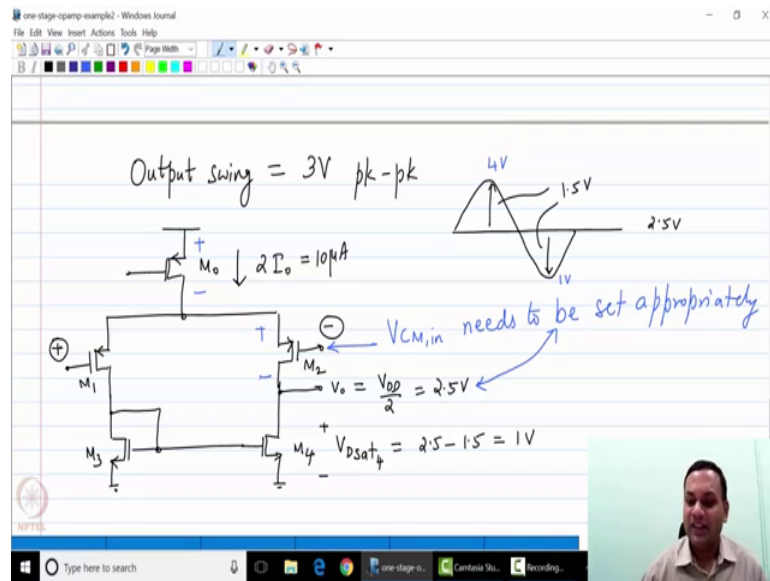 one-stage-opamp-example2 - Windows Journal
File Edit View Insert Actions Tools Help
Page Width
B I
Output swing = 3V pk-pk
4V
1.5V
2.5V
1V
+
M₀ ↓ 2I₀ = 10μA
-
VCM,in needs to be set appropriately
+ M₁
+ - M₂ -
V₀ = VDD/2 = 2.5V
M₃
M₄ + VDsat₄ = 2.5 - 1.5 = 1V
-
NPTEL
Type here to search
one-stage-o...
Camtasia Stu...
Recording...